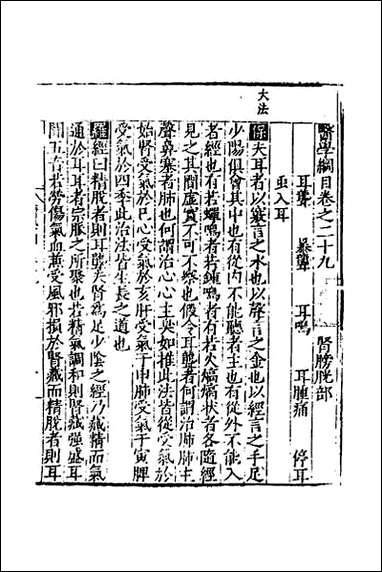 大法
醫學綱目卷之二十九 腎膀胱部
耳聾 暴聾 耳鳴 耳腫痛 停耳
虫入耳
保夫耳者以竅言之水也以聲言之金也以經言之手足
少陽俱會其中也有從内不能聽者主也有從外不能入
者經也有若蟬鳴者有若鐘鳴者有若火熇熇狀者各隨經
見之其間虛實不可不察也假令耳聾者何謂治肺肺主
聲鼻塞者肺也何謂治心心主臭如推此法皆從受氣於
始腎受氣於巳心受氣於亥肝受氣于申肺受氣于寅脾
受氣於四季此治法皆生長之道也
羅經曰精脫者則耳聾夫腎為足少陰之經乃藏精而氣
通於耳耳者宗脈之所聚也若精氣調和則腎藏强盛耳
聞五音若勞傷氣血兼受風邪損於腎藏而精脫者則耳